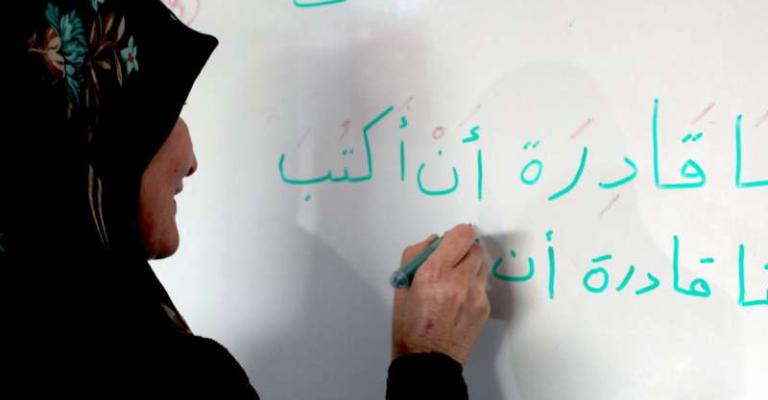 قَادِرَة أَنْ أَكتُبَ
قادرة أن